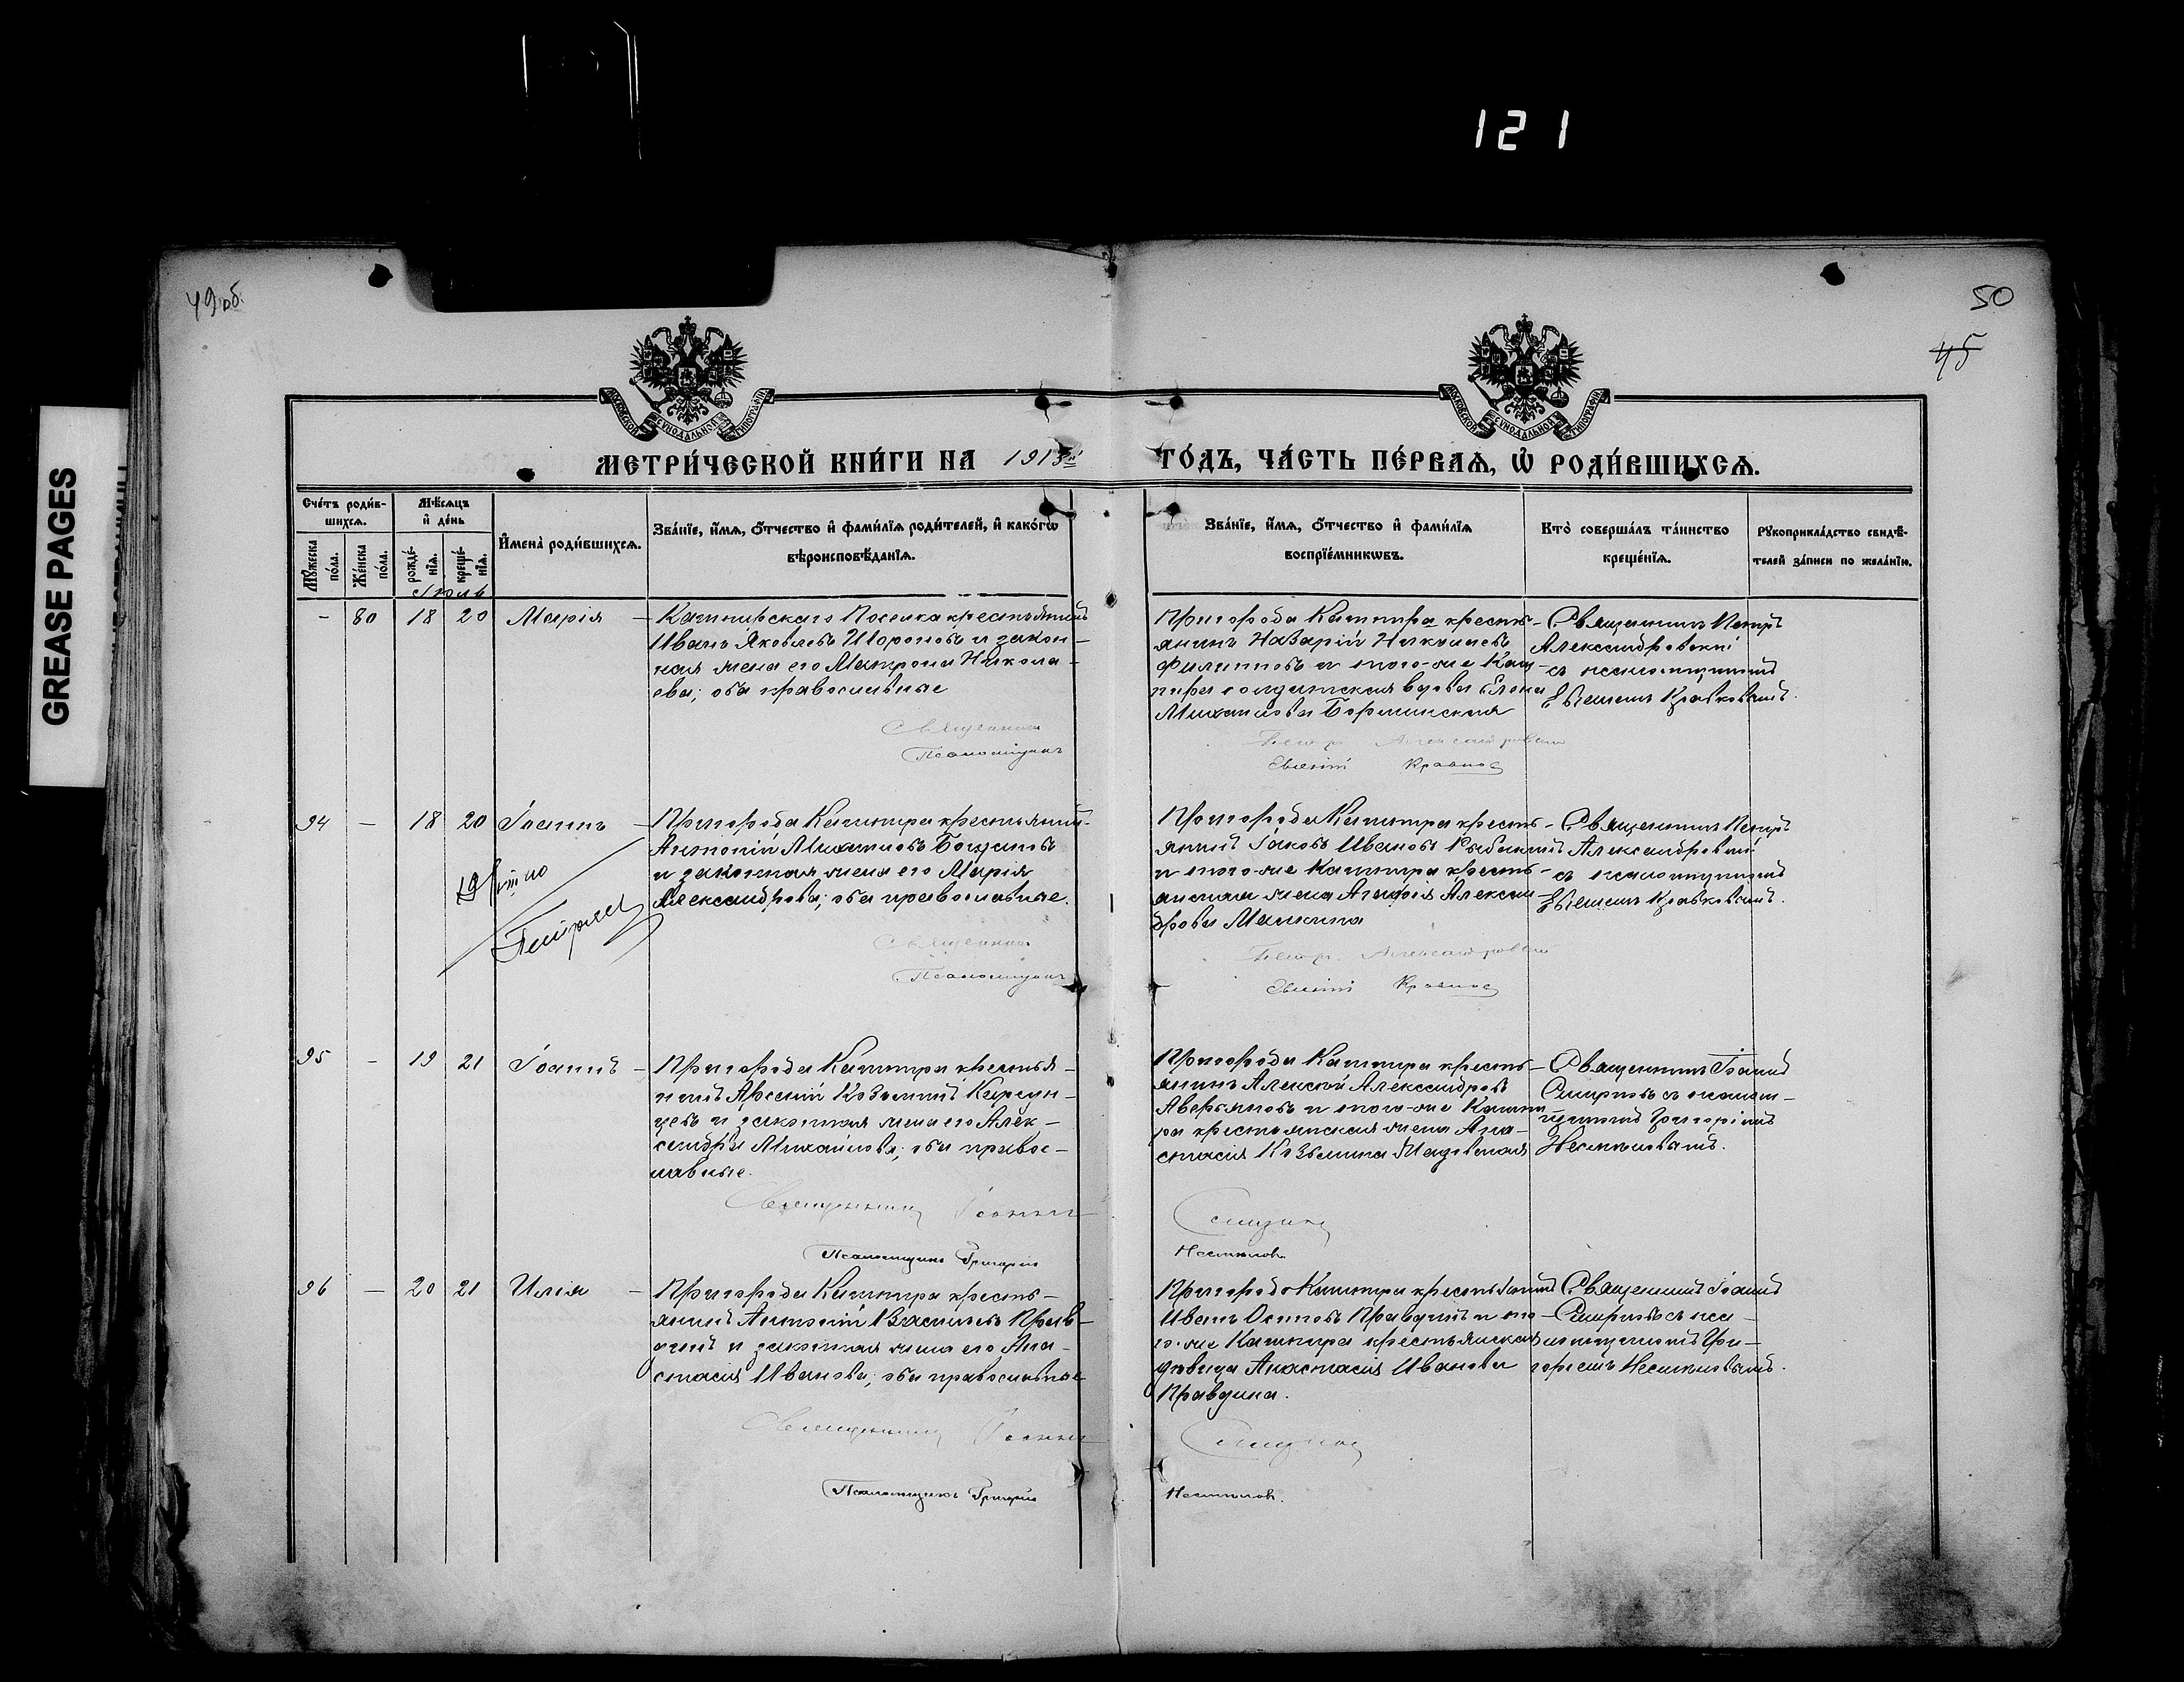 121
GREASE PAGES
49об.
50
45
МОСКОВСКОЙ СУНОДАЛЬНОЙ ТИПОГРАФІИ
МОСКОВСКОЙ СУНОДАЛЬНОЙ ТИПОГРАФІИ
МЕТРИ́ЧЕСКОЙ КНИ́ГИ НА 1913й ГО́ДЪ, ЧА́СТЬ ПЕ́РВАѦ, Ѡ҆ РОДИ́ВШИХСѦ.
Сче́тъ роди́вшихсѧ.
Мꙋ́жеска по́ла.
Же́нска по́ла.
Мѣ́сѧцъ и҆ де́нь
рожде́нїѧ.
креще́нїѧ.
И҆мена̀ роди́вшихсѧ.
Зва́нїе, и҆́мѧ, ѻ҆́тчество и҆ фами́лїѧ роди́телей, и҆ како́гѡ
вѣроисповѣ́данїѧ.
Зва́нїе, и҆́мѧ, ѻ҆́тчество и҆ фами́лїѧ
воспрїе́мникѡвъ.
Кто̀ соверша́лъ та́инство
креще́нїѧ.
Рꙋкоприкла́дство свидѣ́-
телей за́писи по жела́нїю.
Іюль
- 80 18 20 Марія -
Каширскаго Поселка крестьянинъ
Иванъ Яковлевъ Шороповъ и закон-
ная жена его Матрона Никола-
ева; оба православные
Священникъ
Псаломщикъ
Пригорода Кашпира кресть-
янинъ Назарій Николаевъ
Филипповъ и того-же Каш-
пира солдатская вдова Елена
Михайлова
Петръ Александровскій
Евгеній
Священникъ Петръ
Александровскій
съ псаломщикомъ
94 - 18 20 Іоаннъ -
Пригорода Кашпира крестьянинъ
Антоній Михайловъ Богдановъ
и законная жена его Марія
Александрова; оба православные.
Священникъ
Псаломщикъ
Пригорода Кашпира кресть-
янинъ Іаковъ Ивановъ
и того-же Кашпира кресть-
янская жена Агафія Алексан-
дрова
Петръ Александровскій
Евгеній
Священникъ Петръ
Александровскій
съ псаломщикомъ
95 - 19 21 Іоаннъ -
Пригорода Кашпира крестья-
нинъ Арсеній Козьминъ
и законная жена его Алек-
сандра Михайлова; оба правос-
лавные.
Священникъ Іоаннъ
Псаломщикъ Григорій
Пригорода Кашпира кресть-
янинъ Алексій Александровъ
Аверьяновъ и того-же Кашпи-
ра крестьянская жена Ана-
стасія Козьмина
Смирновъ
Несмѣловъ
Священникъ Іоаннъ
Смирновъ съ псалом-
щикомъ Григоріемъ
Несмѣловымъ.
96 - 20 21 Илія -
Пригорода Кашпира кресть-
янинъ Антоній Васильевъ Прав-
динъ и законная жена его Ана-
стасія Иванова; оба православные
Священникъ Іоаннъ
Псаломщикъ Григорій
Пригорода Кашпира крестьянинъ
Иванъ Осиповъ Правдинъ и то-
го-же Кашпира крестьянская
дѣвица Анастасія Иванова
Правдина.
Смирновъ
Несмѣловъ.
Священникъ Іоаннъ
Смирновъ съ пса-
ломщикомъ Гри-
горіемъ Несмѣловымъ.